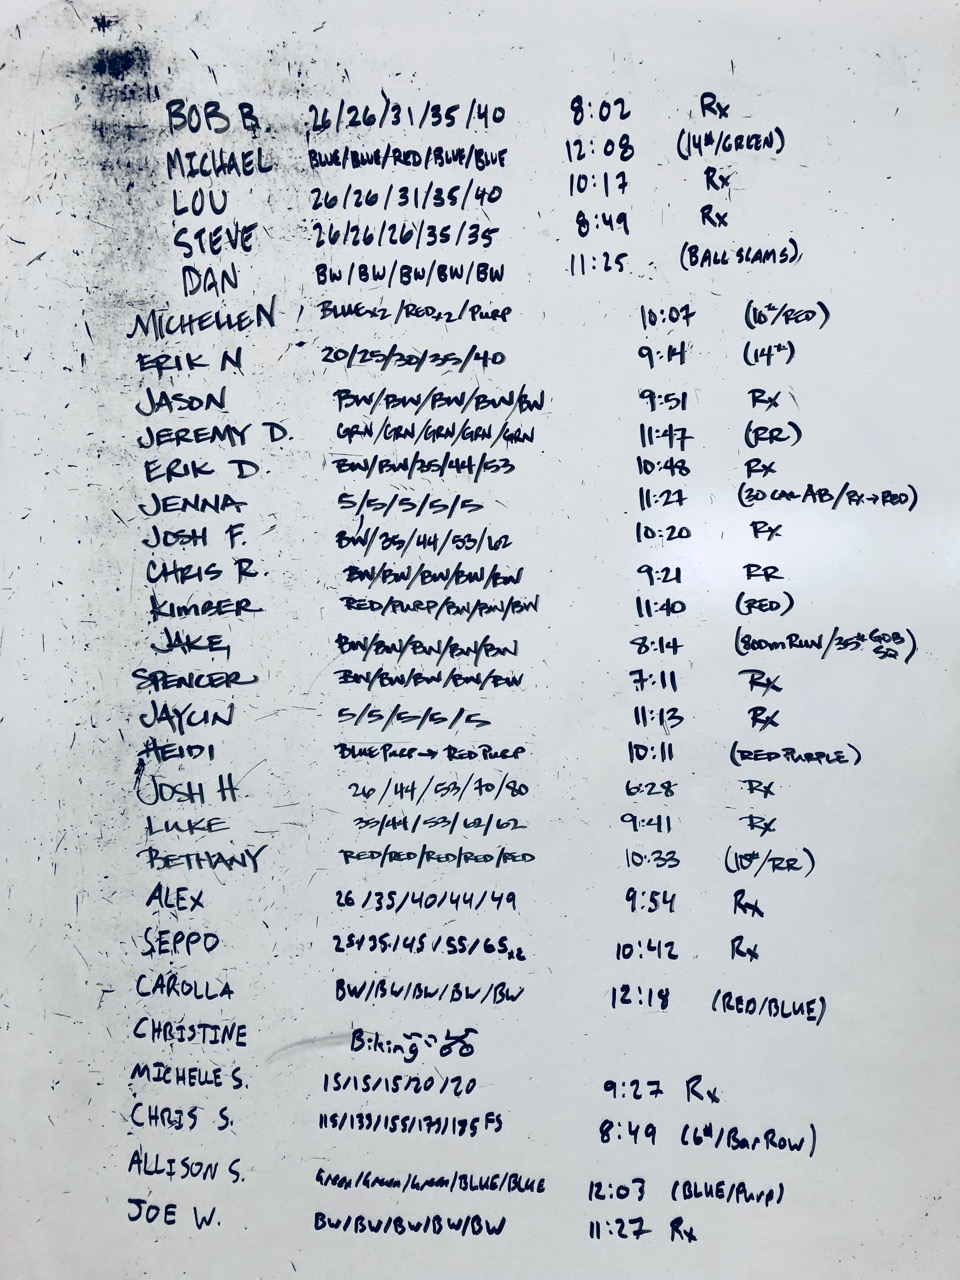 BOB B. 26/26/31/35/40 8:02 Rx
MICHAEL BLUE/BLUE/RED/BLUE/BLUE 12:08 (14#/GREEN)
LOU 26/26/31/35/40 10:17 Rx
STEVE 26/26/26/35/35 8:49 Rx
DAN BW/BW/BW/BW/BW 11:25 (BALL SLAMS)
MICHELLE N BLUEx2/REDx2/PURP 10:07 (10#/RED)
ERIK N 20/25/30/35/40 9:14 (14#)
JASON BW/BW/BW/BW/BW 9:51 Rx
JEREMY D. GRN/GRN/GRN/GRN/GRN 11:47 (RR)
ERIK D. BW/BW/35/44/53 10:48 Rx
JENNA 5/5/5/5/5 11:27 (30 CAL AB/RX→RED)
JOSH F. BW/35/44/53/62 10:20 Rx
CHRIS R. BW/BW/BW/BW/BW 9:21 RR
KIMBER RED/PURP/BW/BW/BW 11:40 (RED)
JAKE BW/BW/BW/BW/BW 8:14 (800m RUN/35# GOB SQ)
SPENCER BW/BW/BW/BW/BW 7:11 Rx
JAYLIN 5/5/5/5/5 11:13 Rx
HEIDI BLUE PURP → RED PURP 10:11 (RED PURPLE)
JOSH H 26/44/53/70/80 6:28 Rx
LUKE 35/44/53/62/62 9:41 Rx
BETHANY RED/RED/RED/RED/RED 10:33 (10#/RR)
ALEX 26/35/40/44/49 9:54 Rx
SEPPO 25/35/45/55/65x2 10:42 Rx
CAROLLA BW/BW/BW/BW/BW 12:18 (RED/BLUE)
CHRISTINE Biking
MICHELLE S. 15/15/15/20/20 9:27 Rx
CHRIS S. 115/135/155/175/185 FS 8:49 (6#/Bar Row)
ALLISON S. Green/Green/Green/BLUE/BLUE 12:03 (BLUE/Purp)
JOE W. BW/BW/BW/BW/BW 11:27 Rx